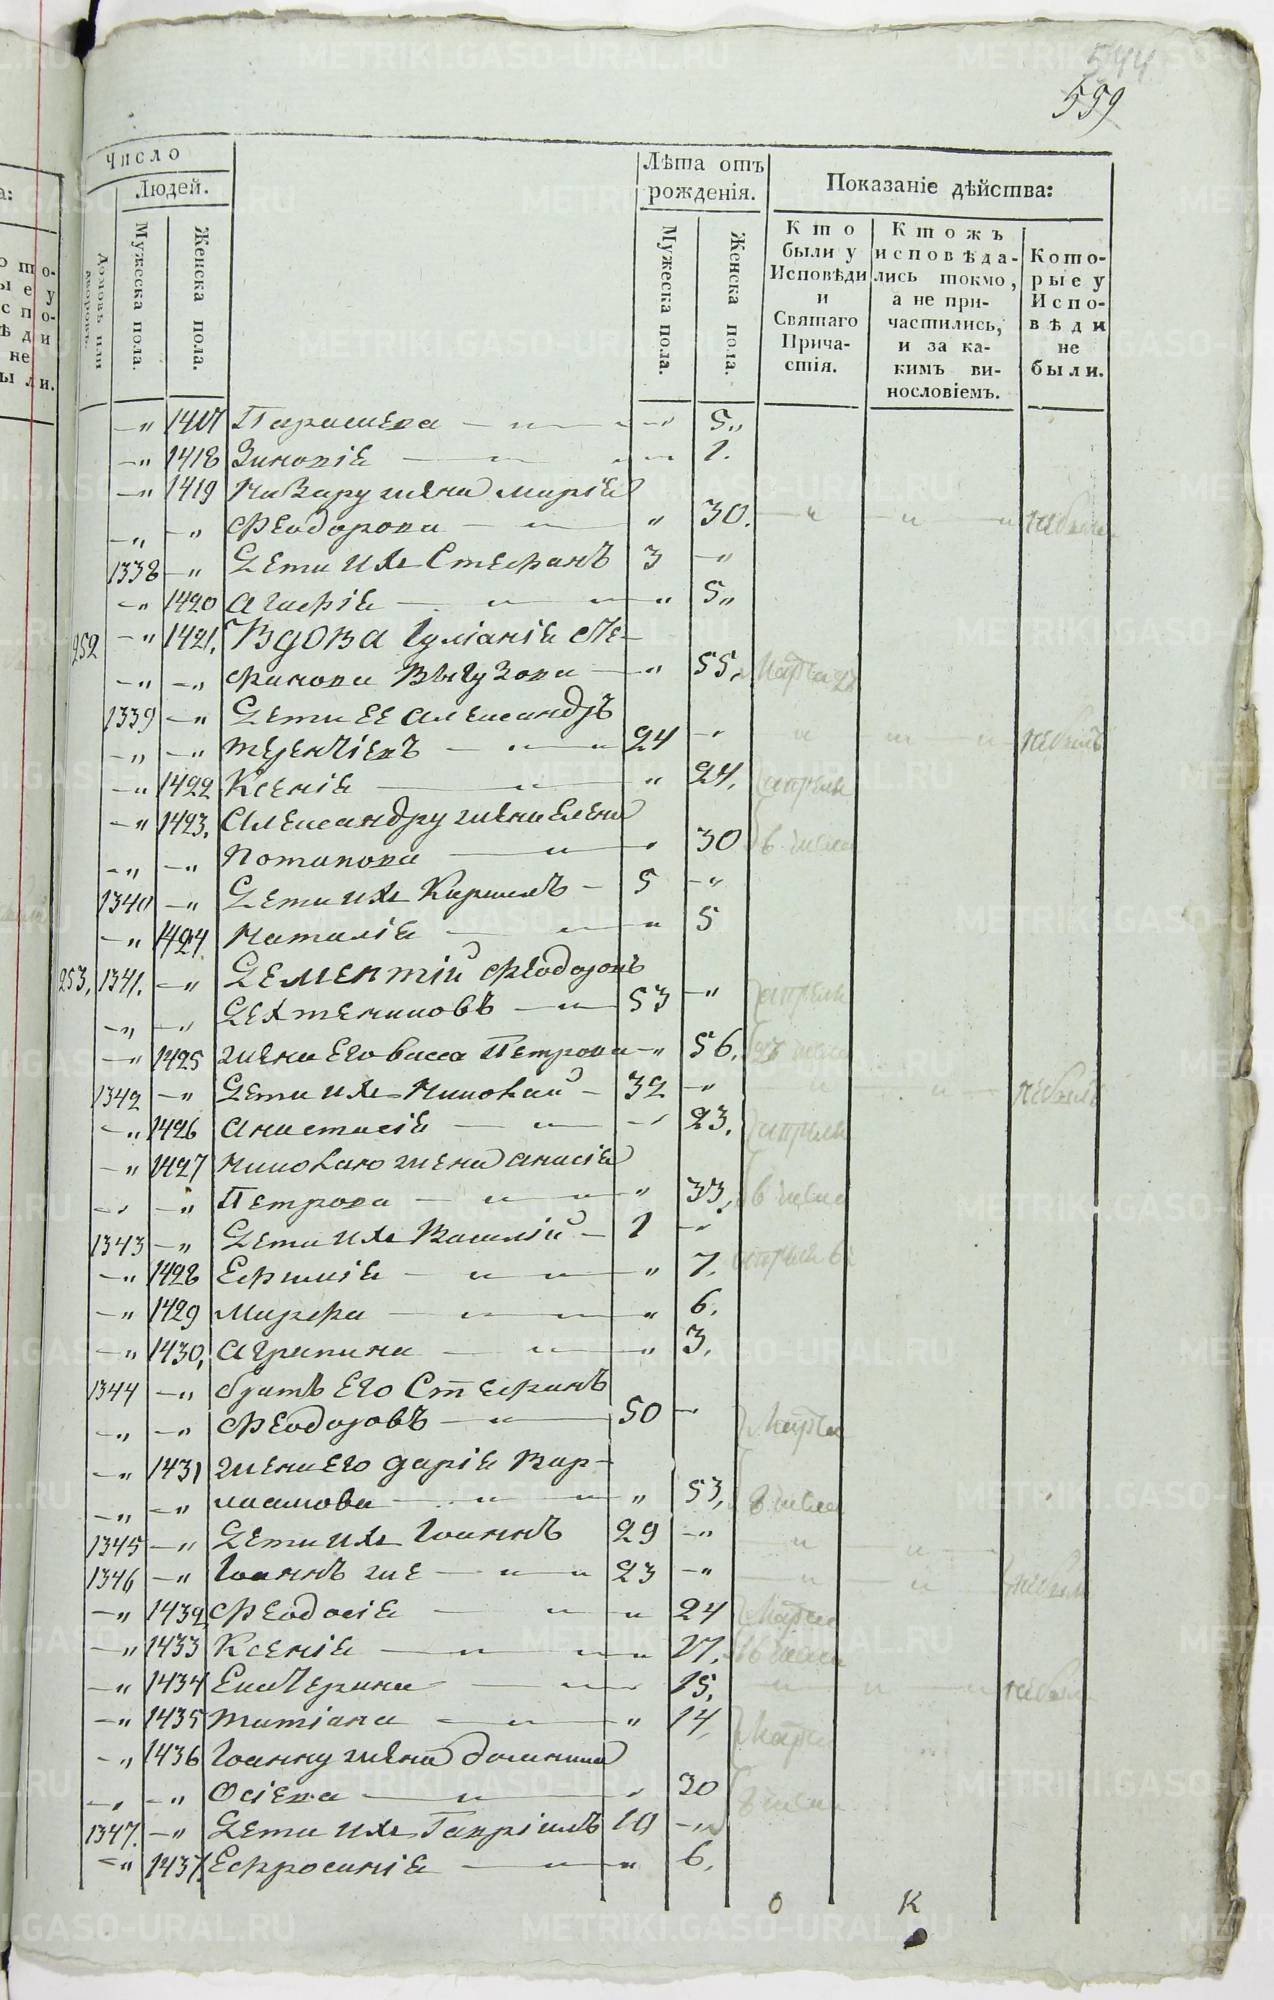 544
599
Число
Людей.
Домовъ или дворовъ.
Мужеска пола.
Женска пола.
Лѣта отъ рожденія.
Мужеска пола.
Женска пола.
Показаніе дѣйства:
Кто были у Исповѣди и Святаго Причастія.
Ктожъ исповѣдались токмо, а не причастились, и за какимъ винословіемъ.
Которые у Исповѣди не были.
—„ 1417 Параскева — „ — „ 5„
—„ 1418 Зиновія — „ — 1.
—„ 1419 Назару жена Марія
—„ —„ Феодорова — „ — „ 30. — „ — „ — „ небыла
1338 —„ Дети ихъ Стефанъ 3 —„
—„ 1420 Агафія — „ — „ 5„
252 —„ 1421. Вдова Іуліанія Сте-
—„ —„ фанова — „ 55. Марта
1339 —„ Дети ее Александръ
—„ —„ Терентіевъ — „ — „ 24 —„ „ — „ — „ небылъ
—„ 1422 Ксенія — „ — „ 24. апреля
—„ 1423. Александру жена Елена
—„ —„ Потапова — „ — „ 30 6 числа
1340 —„ Дети ихъ Кирилъ — 5 —„
—„ 1424 Наталія — „ — „ 5
253. 1341. —„ Дементій Феодоровъ
—„ —„ — „ — 53 —„ апреля
—„ 1425 жена его Васса Петрова —„ 56. числа
1342 —„ Дети ихъ Николай — 32 —„ — „ — „ — небылъ
—„ 1426 Анастасія — „ — „ 23. апреля
—„ 1427 Николаю жена Анисія
—„ —„ Петрова — „ — „ 33. 6 числа
1343 —„ Дети ихъ Василій — 1 —„
—„ 1428 Ефимія — „ — „ 7. апреля 6
—„ 1429 Марфа — „ — „ 6.
—„ 1430. Агрипина — „ — „ 3.
1344 —„ братъ его Стефанъ
—„ —„ Феодоровъ — „ — 50 —„ Марта
—„ 1431 жена его Дарія Вар-
—„ —„ лаамова — „ — „ 53. числа
1345 —„ Дети ихъ Іоаннъ 29 —„ — „ — „ —
1346 —„ Іоаннъ же — „ — „ 23 —„ — „ — „ — небыли
—„ 1432 Феодосія — „ — „ 24 Марта
—„ 1433 Ксенія — „ — „ 17. числа
—„ 1434 Екатерина — „ — 15. — „ — „ — „ небыла
—„ 1435 Татіана — „ — „ 14. Марта
—„ 1436 Іоанну жена Домника
—„ —„ Осіева — „ — „ 30 числа
1347. —„ Дети ихъ Гавріилъ 10 —„
—„ 1437. Ефросинія — „ — „ 6.
О К
METRIKI.GASO-URAL.RU